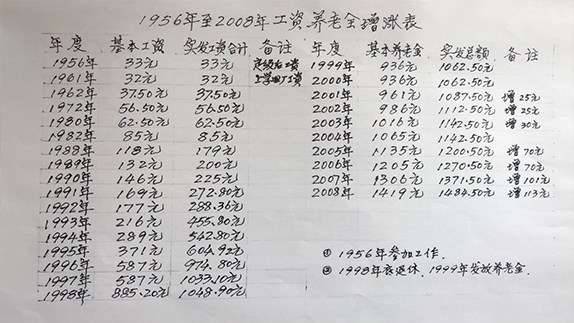 1956年至2008年工资养老金增涨表
年度 基本工资 实发工资合计 备注 年度 基本养老金 实发总额 备注
1956年 33元 33元 定级后工资 1999年 936元 1062.50元
1961年 32元 32元 上学回厂工资 2000年 936元 1062.50元
1962年 37.50元 37.50元 2001年 961元 1087.50元 增25元
1972年 56.50元 56.50元 2002年 986元 1112.50元 增25元
1980年 62.50元 62.50元 2003年 1016元 1142.50元 增30元
1982年 85元 85元 2004年 1065元 1142.50元
1988年 118元 179元 2005年 1135元 1200.50元 增70元
1989年 132元 200元 2006年 1205元 1270.50元 增70元
1990年 146元 225元 2007年 1306元 1371.50元 增101元
1991年 169元 272.80元 2008年 1419元 1484.50元 增113元
1992年 177元 288.36元
1993年 216元 455.80元
1994年 289元 542.80元
1995年 371元 604.92元
1996年 587元 974.80元
1997年 587元 1033.10元
1998年 885.20元 1048.90元
① 1956年参加工作.
② 1998年底退休，1999年发放养老金.